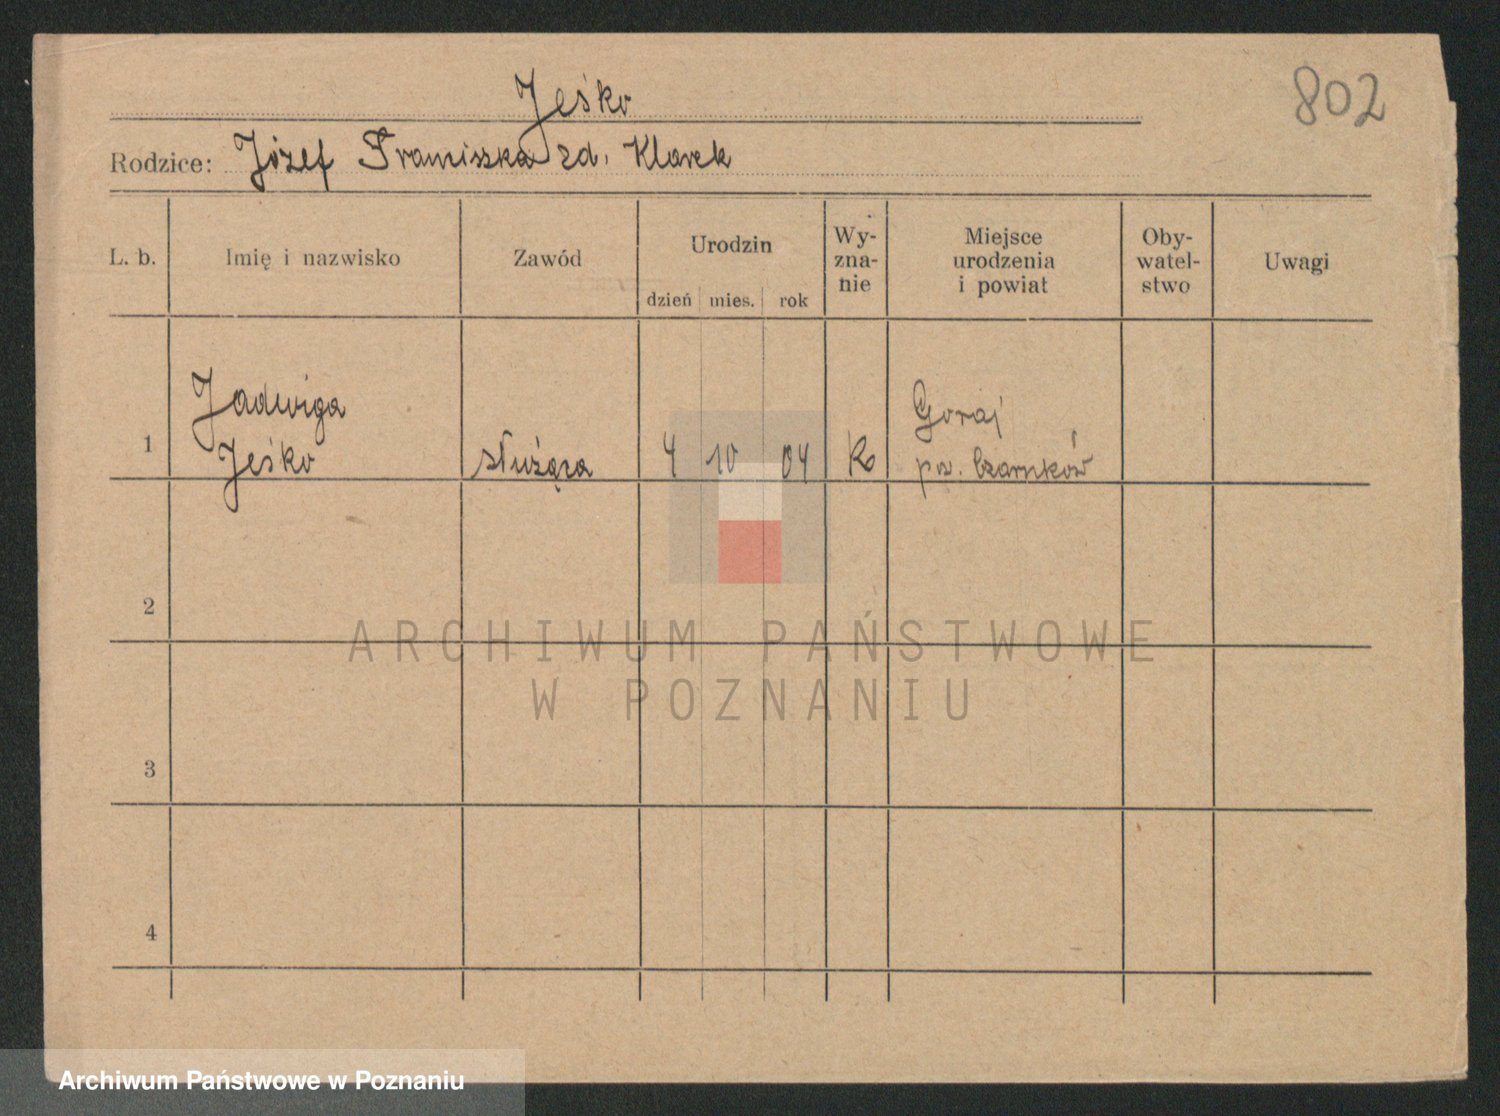 802
Jeśko
Rodzice: Józef Franciszka zd. Klarek
L. b.
Imię i nazwisko
Zawód
Urodzin
dzień mies. rok
Wy-
zna-
nie
Miejsce
urodzenia
i powiat
Oby-
watel-
stwo
Uwagi
1
Jadwiga
Jeśko
służąca
4 10 04
K
Goraj
pow. Czarnków
2
3
4
ARCHIWUM PAŃSTWOWE
W POZNANIU
Archiwum Państwowe w Poznaniu